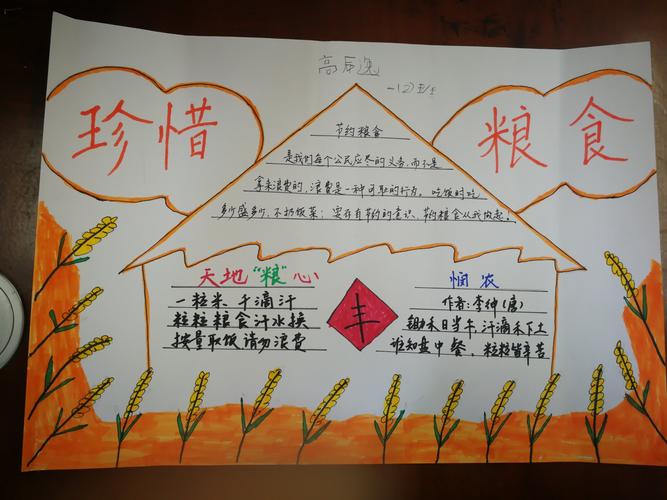 高
一(2)班
珍惜
粮食
节约粮食
是我们每个公民应尽的义务,而不是
拿来浪费的,浪费是一种可耻的行为。吃饭时吃
多少盛多少,不扔饭菜;要存有节约的意识、节约粮食从我做起!
天地“粮”心
一粒米 千滴汗
粒粒粮食汗水换
按量取饭请勿浪费
丰
悯农
作者:李绅(唐)
锄禾日当午 汗滴禾下土
谁知盘中餐,粒粒皆辛苦